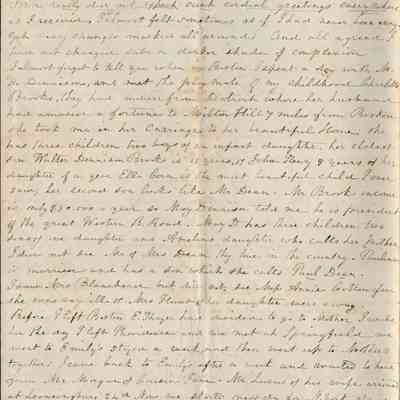 I really did not expect such cordial greetings everywhere
as I received. I almost felt sometimes as if I had never been away
only many changes marked all around. And all agreed I
have not changed but a darker shade of complexion
I almost forgot to tell you when in Boston I spent a day with Mr.
Dr. Dennison, and met the play mate of my childhood Charlotte
Brooks, they had moved from Detroit where her husband
have amassed a fortune to Milton Hill 7 miles from Boston
she took me in her carriage to her beautiful Home. She
has three children two boys & an infant daughter her eldest
son Walter Dennison Brooks is 11 years, & John Henry 8 years & her
daughter of a year Ella Cora is the most beautiful child I ever
saw, her second son looks like Mr. Dean. Mr Brook income
is only $30.000 a year so Mary Dennison told me he is president
of the great Western R. Road. Mary D has three children two
sons & one daughter and Abraham daughter who calls her father
I did not see Mr & Mrs Dean they live in the country. Pauline
is married and has a son which she calls Paul Dean.
I saw Mrs Blanchard but did not see Mrs Annie
she was very ill & Mrs Plum & her daughter were away
Before I left Boston E. Thayer had decided to go to Mother. I wrote
her the day I left Providence and we met at Springfield we
went to Emily's staid a week and then went up to Mother's
together. I came back to Emily's after a week and wanted to have
gone Mr. Morgan & Cousin Jane. Mr Lucas & his wife arrived
at 24th Nov we